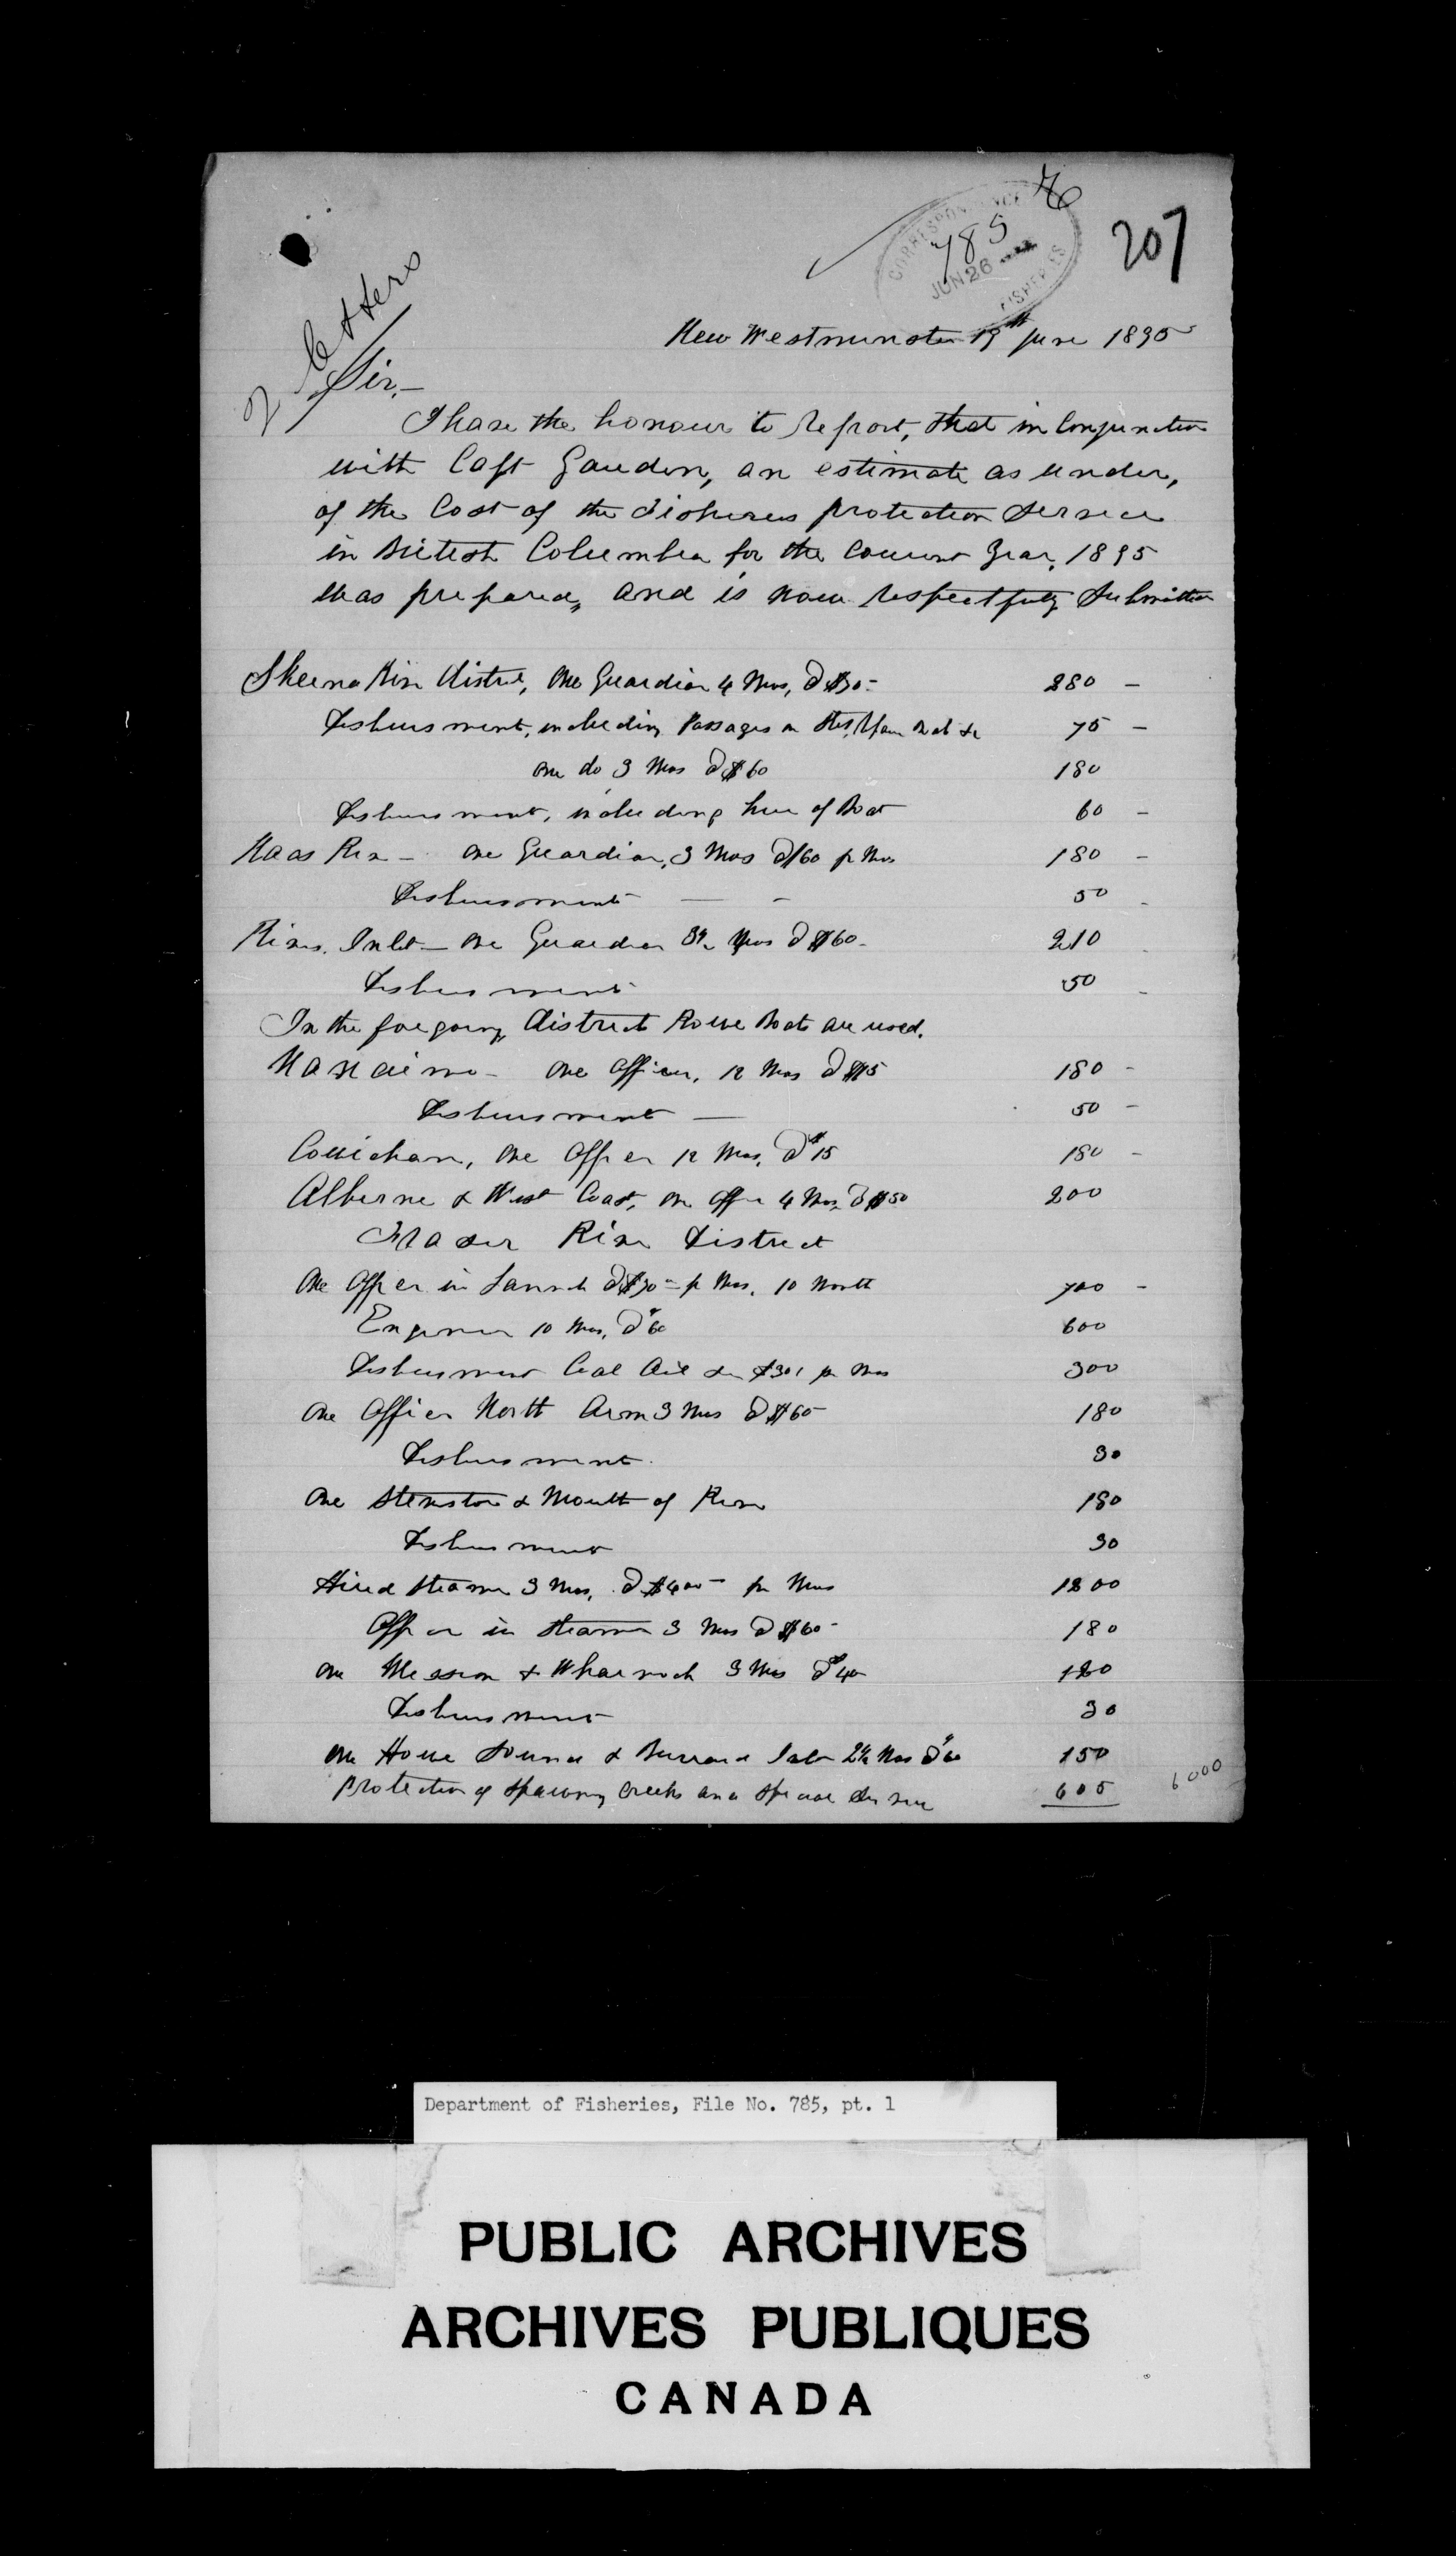 CORRESPONDENCE
785
JUN 26
FISHERIES
207
2 Letters
New Westminster 19th June 1895
Sir,—
I have the honour to Report, that in Conjunction
with Capt Gaudin, an estimate as under,
of the Cost of the Fisheries protection Service
in British Columbia for the Current Year, 1895
was prepared, and is now respectfully Submitted
Skeena River District, One Guardian 4 Mos, @ $70- 280 —
Disbursment, including Passages on Strs, 75 —
One do 3 Mos @ $60 180
Disbursment, including hire of Boat 60 —
Naas River — One Guardian, 3 Mos @ $60 pr Mos 180 —
Disbursment — - 50 -
Rivers Inlet — One Guardian 3½ Mos @ $60- 210
Disbursment 50 -
In the foregoing District Rowe Boats are used.
Nanaimo — One Officer, 12 Mos @ $15 180 -
Disbursment — 50 -
Cowichan, One Officer 12 Mos, @ $15 180 -
Alberne & West Coast, One Officer 4 Mos, @ $50 200
Fraser River District
One Officer in Launch @ $70- pr Mos, 10 Month 700 -
Engineer 10 Mos, @ $60 600
Disbursment Coal Oil &c $30 pr Mos 300
One Officer North Arm 3 Mos @ $60- 180
Disbursment 30
One Steveston & Mouth of River 180
Disbursment 30
Hired Steamer 3 Mos, @ $400- pr Mos 1200
Officer in Steamer 3 Mos @ $60- 180
One Mission & Wharnock 3 Mos @ $40 120
Disbursment 30
One Howe Sound & Burrard Inlet 2½ Mos @ $60 150
Protection of Spawning Creeks and Special Service 605
6000
Department of Fisheries, File No. 785, pt. 1
PUBLIC ARCHIVES
ARCHIVES PUBLIQUES
CANADA